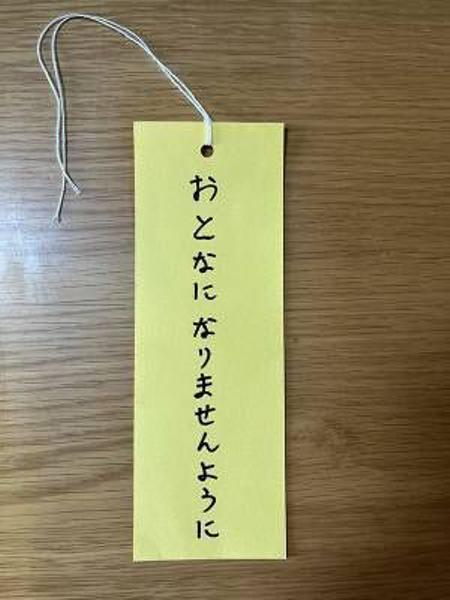 おとなになりませんように